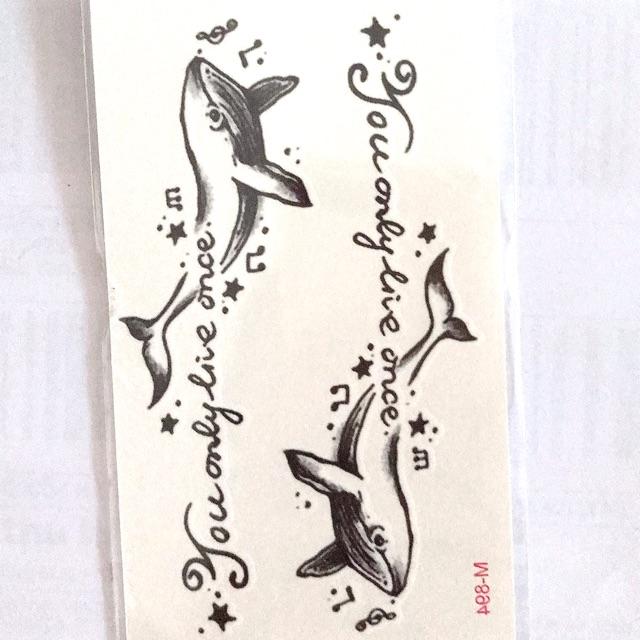 You only live once
You only live once
M-894